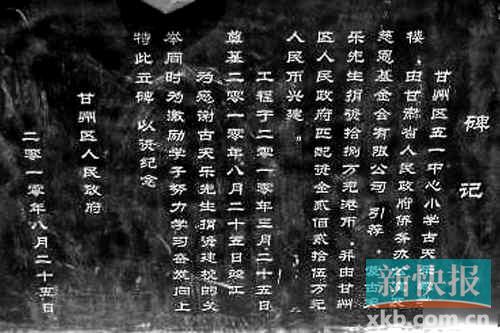 碑记
甘州区五一中心小学古天
楼，由甘肃省人民政府侨务办
慈恩基金会有限公司 引荐，古天
乐先生捐资拾捌万元港币，并由甘州
区人民政府匹配资金贰佰贰拾伍万元
人民币兴建。
工程于二零一零年三月二十五日
奠基二零一零年八月二十五日竣工
为感谢古天乐先生捐资建校的义
举同时为激励学子努力学习奋发向上
特此立碑 以资纪念
甘州区人民政府
二零一零年八月二十五日
新快报
xkb.com.cn